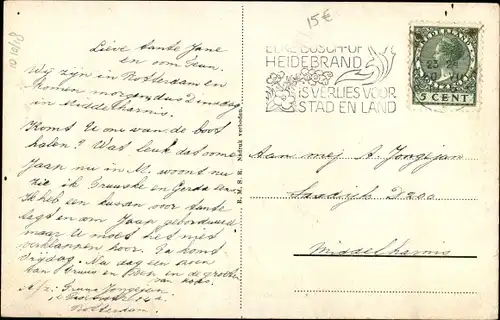 15 €
Lieve tante Jane
en oom Teun.
Wij zijn in Rotterdam en
komen morgen dus Dinsdag
in Middelharnis.
Komt U ons van de boot
halen? Wat leuk dat ome
Jaap nu in M. woont nu
zie ik Truuske en Gerda
Ik heb een kussen voor tante
en om Jaap geborduurd
maar U moet het niet
verklappen hoor. Pa komt
Vrijdag. Nu dag een zoen
van Truus en en de groeten
van
Afz: Truus Jongejan
Rotterdam.
Nadruk verboden
ELKE BOSCH- OF
HEIDEBRAND
IS VERLIES VOOR
STAD EN LAND
NEDERLAND
5 CENT
Aan mej A. Jongejan
Zandijk D200
Middelharnis